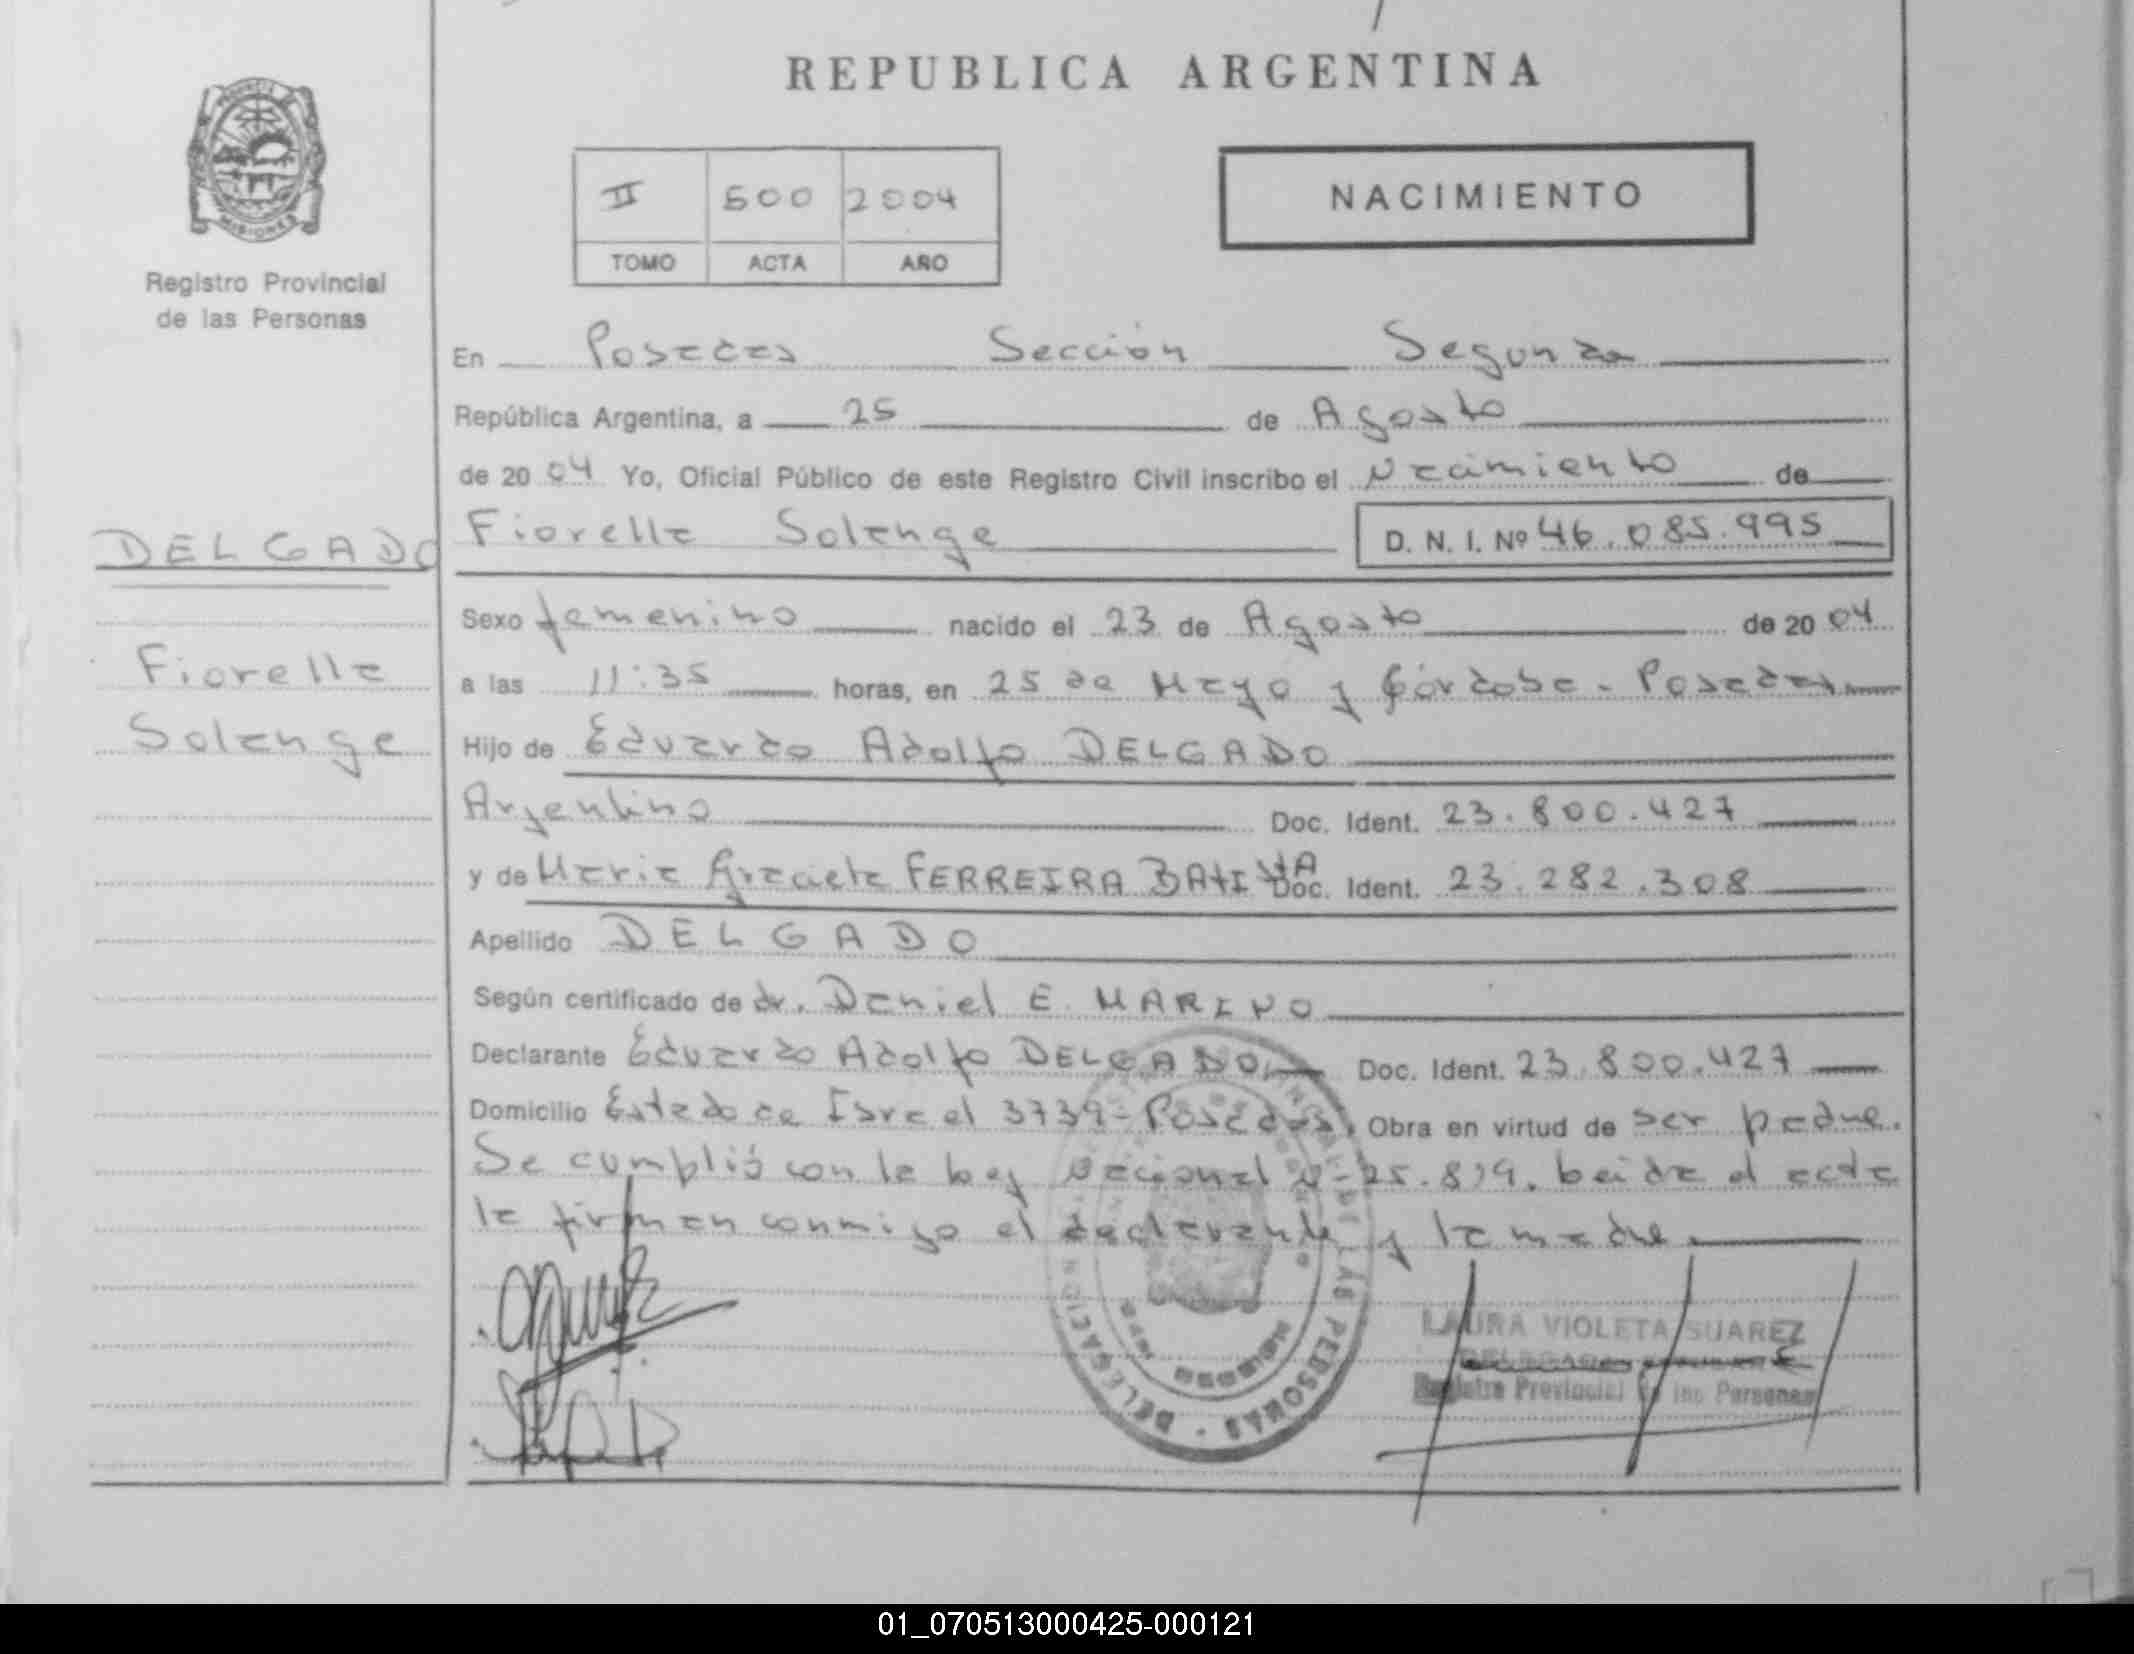 REPUBLICA ARGENTINA
PROVINCIA DE
MISIONES
Registro Provincial
de las Personas
II 500 2004
TOMO ACTA AÑO
NACIMIENTO
En Posadas Sección Segunda
República Argentina, a 25 de Agosto
de 2004 Yo, Oficial Público de este Registro Civil inscribo el Nacimiento de
DELGADO
Fiorella Solange D. N. I. Nº 46.085.995
Sexo femenino nacido el 23 de Agosto de 2004
Fiorella
a las 11:35 horas, en 25 de Mayo y Córdoba - Posadas
Solange
Hijo de Eduardo Adolfo DELGADO
Argentino Doc. Ident. 23.800.427
y de Maria Graciela FERREIRA BATISTA Doc. Ident. 23.282.308
Apellido DELGADO
Según certificado de dr. Daniel E. MARINO
Declarante Eduardo Adolfo DELGADO Doc. Ident. 23.800.427
Domicilio Estado de Israel 3739 - Posadas. Obra en virtud de ser padre.
Se cumplió con la ley Nacional Nº 25.819. Leida el acta
la firman conmigo el declarante y la madre.
LAURA VIOLETA SUAREZ
DELEGADA
Registro Provincial de las Personas
PROVINCIAL DE LAS PERSONAS - DELEGACION
01_070513000425-000121